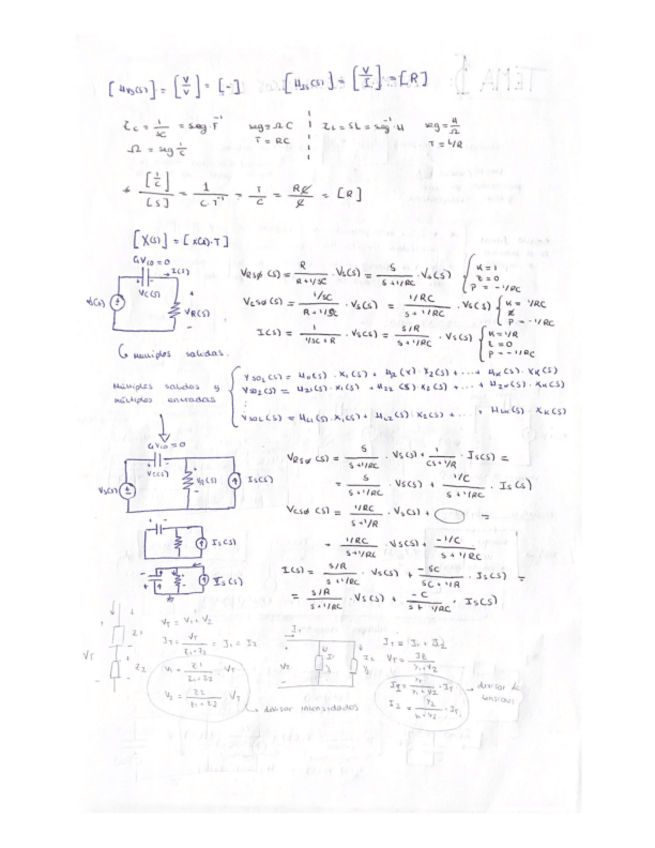 [H_VS(S)] = [V/V] = [-]   [H_IS(S)] = [V/I] = [R]
Z_C = 1/SC = seg · F⁻¹   seg = Ω C   Z_L = SL = seg⁻¹ · H   seg = H/Ω
Ω = seg 1/C   T = RC   T = L/R
[1/C]/[S] = 1/(C·T⁻¹) = T/C = RC/C = [R]
[X(S)] = [X(t)·T]
V_C10 = 0
I(S)
V_S(S)
V_C(S)
V_R(S)
V_RSØ(S) = R/(R+1/SC) · V_S(S) = S/(S+1/RC) · V_S(S) { K=1 Z=0 P=-1/RC
V_CSØ(S) = (1/SC)/(R+1/SC) · V_S(S) = (1/RC)/(S+1/RC) · V_S(S) { K=1/RC P=-1/RC
I(S) = 1/(1/SC+R) · V_S(S) = (S/R)/(S+1/RC) · V_S(S) { K=1/R Z=0 P=-1/RC
Multiples salidas.
Múltiples salidas y
múltiples entradas
Y_SO1(S) = H_11(S) · X_1(S) + H_12(S) · X_2(S) + ... + H_1K(S) · X_K(S)
Y_SO2(S) = H_21(S) · X_1(S) + H_22(S) · X_2(S) + ... + H_2K(S) · X_K(S)
Y_SOL(S) = H_L1(S) · X_1(S) + H_L2(S) · X_2(S) + ... + H_LK(S) · X_K(S)
V_C10 = 0
V_C(S)
V_S(S)
V_R(S)
I_S(S)
V_RSØ(S) = S/(S+1/RC) · V_S(S) + 1/(CS+1/R) · I_S(S) =
= S/(S+1/RC) · V_S(S) + (1/C)/(S+1/RC) · I_S(S)
V_CSØ(S) = (1/RC)/(S+1/R) · V_S(S) + =
= (1/RC)/(S+1/RC) · V_S(S) + (-1/C)/(S+1/RC)
I_S(S)
I_S(S)
I(S) = (S/R)/(S+1/RC) · V_S(S) + (-SC)/(SC+1/R) · I_S(S) =
= (S/R)/(S+1/RC) · V_S(S) + (-C)/(S+1/RC) · I_S(S)
V_T
Z_1
Z_2
V_T = V_1 + V_2
I_T = V_T/(Z_1+Z_2) = I_1 = I_2
V_1 = Z_1/(Z_1+Z_2) · V_T
V_2 = Z_2/(Z_1+Z_2) · V_T
divisor intensidades
I_T
V_T
I_T = I_1 + I_2
I_2 = Y_2/(Y_1+Y_2) · I_T
divisor de
tensiones